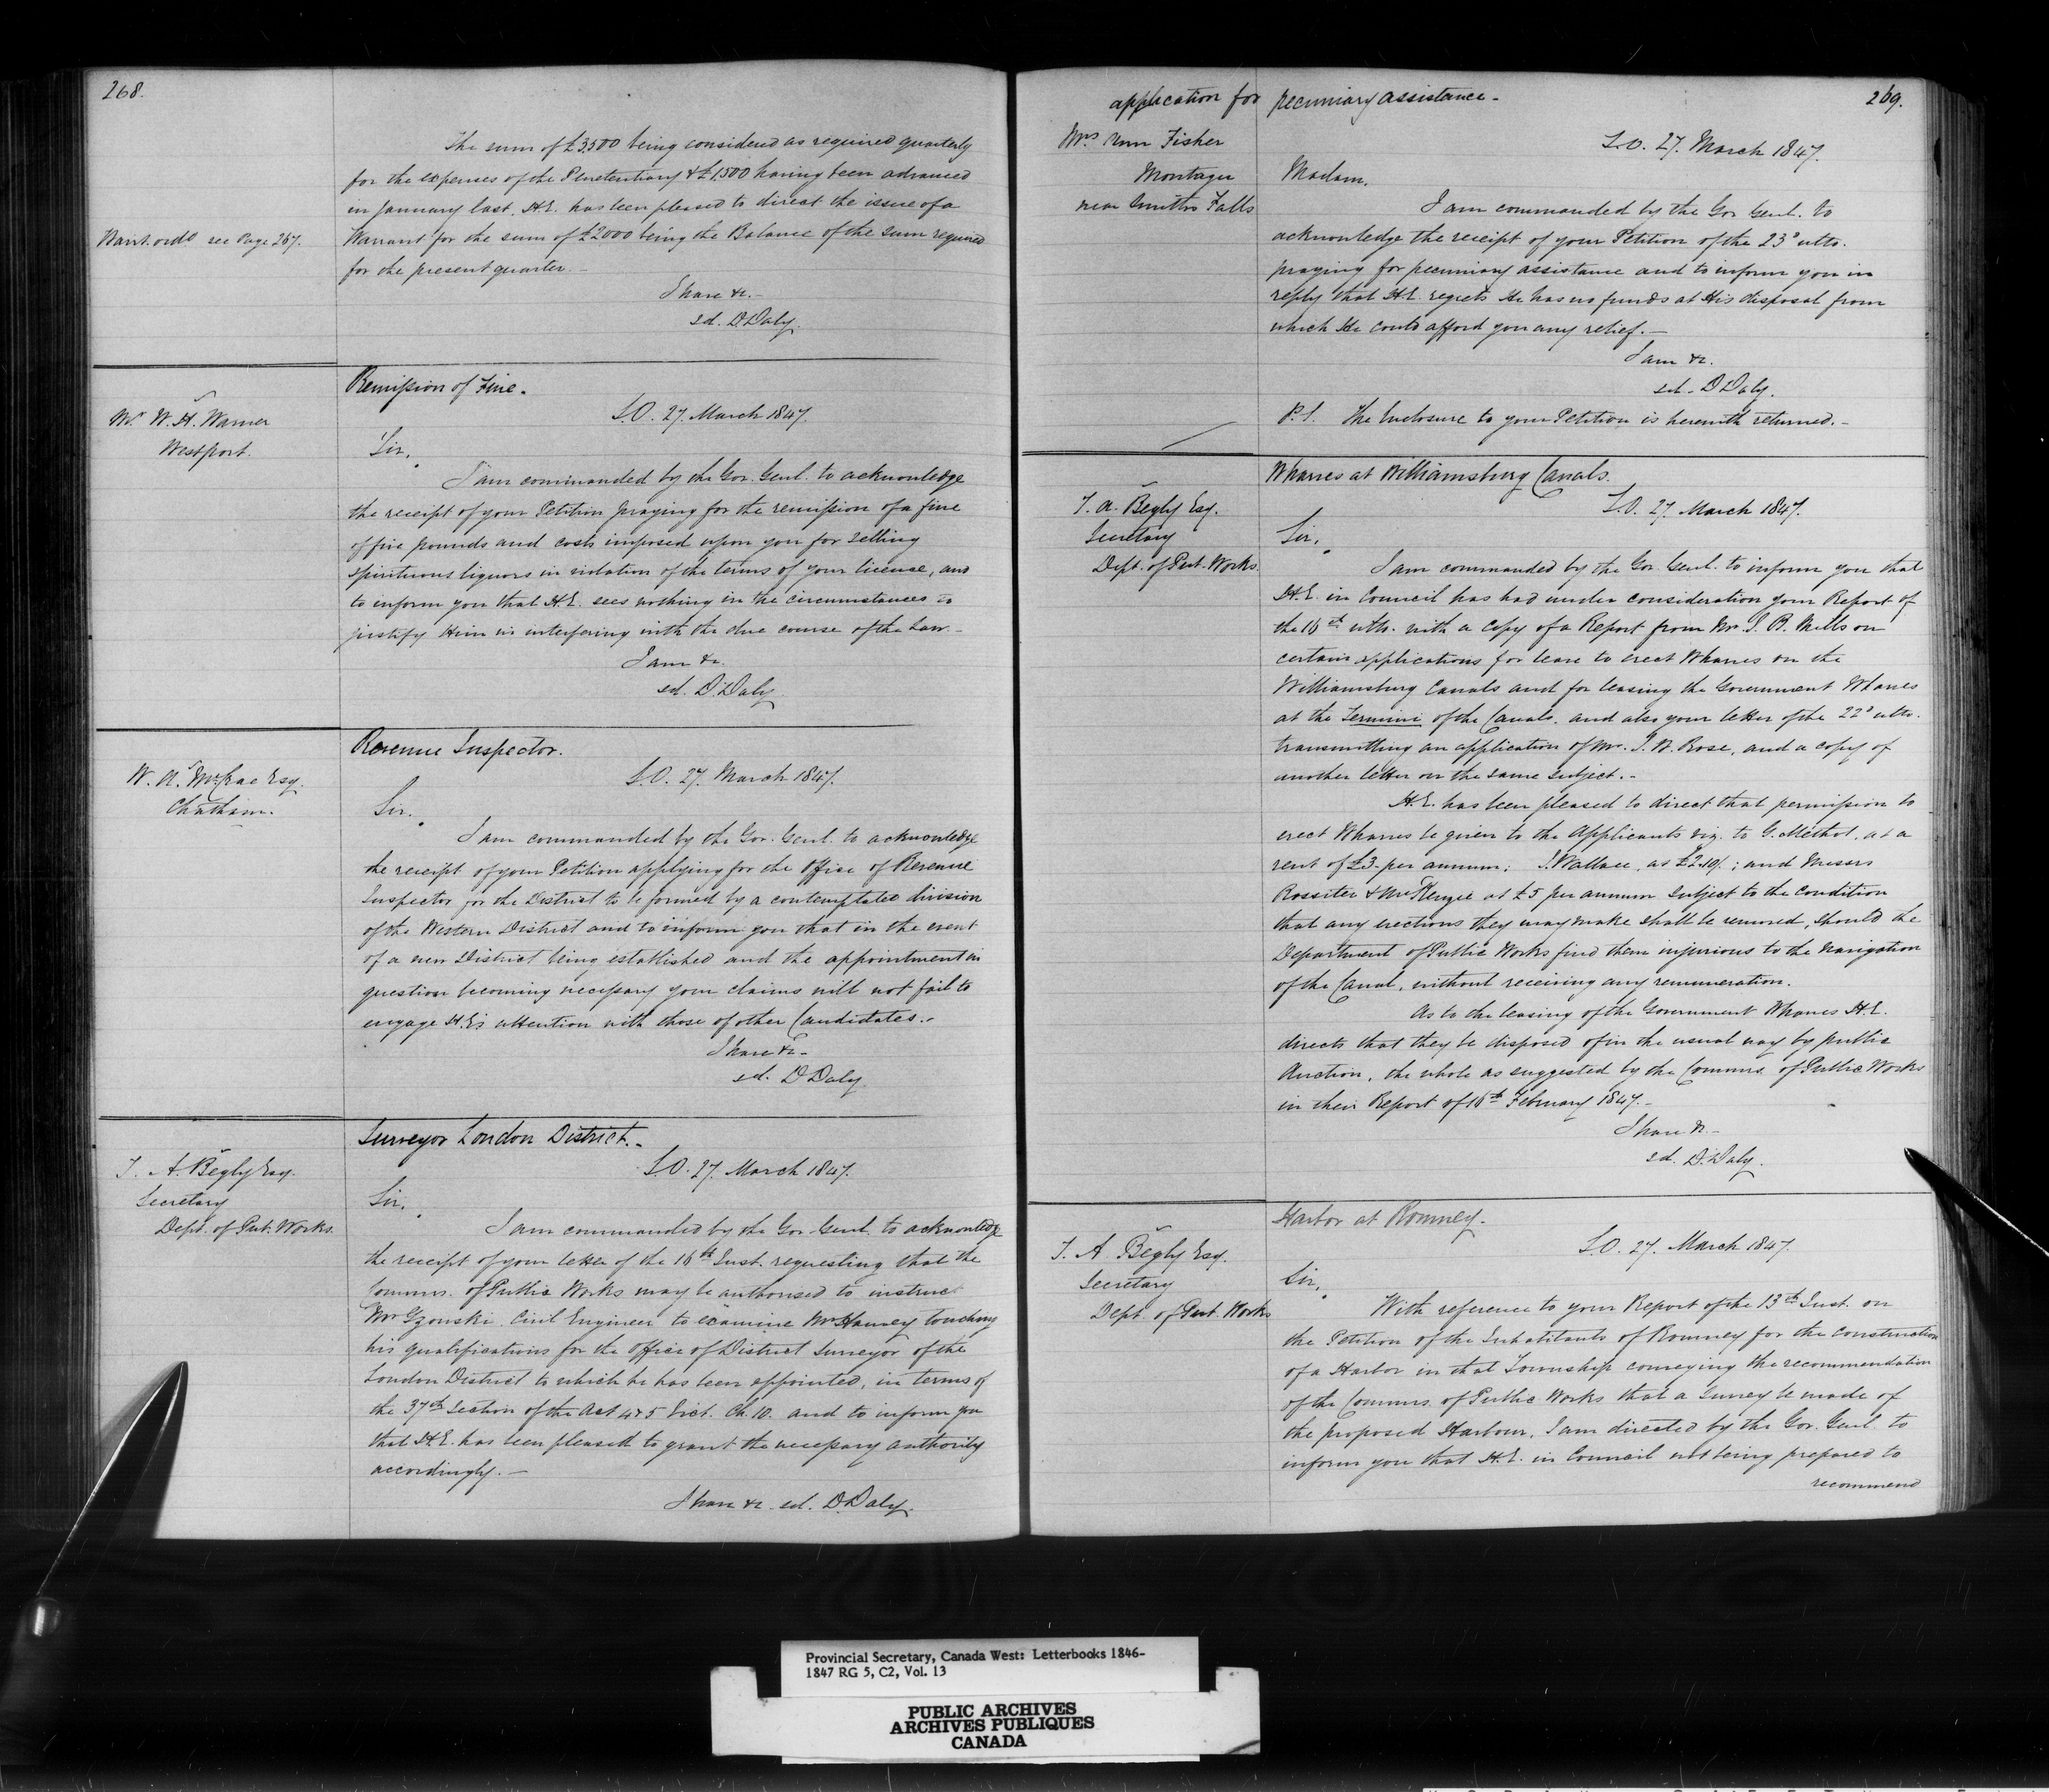 268.
The sum of £3,500 being considered as required quarterly
for the expenses of the Penetentiary & £1,500 having been advanced
in January last, H.E. has been pleased to direct the issue of a
Warrant for the sum of £2000 being the Balance of the sum required
for the present quarter.-
I have &c.-
sd. D. Daly.
Warrt. ordd see Page 267.
Remission of Fine.
S.O. 27. March 1847.
Mr W. H. Warner
Westport.
Sir,
I am commanded by the Gov. Genl. to acknowledge
the receipt of your Petition praying for the remission of a fine
of five pounds and costs imposed upon you for selling
spirituous liquors in violation of the terms of your license, and
to inform you that H.E. sees nothing in the circumstances to
justify Him in interfering with the due course of the Law.-
I am &c.
sd. D. Daly
Revenue Inspector.
S.O. 27. March 1847.
W. A. McCrae Esq.
Chatham.
Sir.
I am commanded by the Gov. Genl. to acknowledge
the receipt of your Petition applying for the Office of Revenue
Inspector for the District to be formed by a contemplated division
of the Western District and to inform you that in the event
of a new District being established and the appointment in
question becoming necessary your claims will not fail to
engage H.E's attention with those of other Candidates.-
I have &c-
sd. D Daly
Surveyor London District.-
S.O. 27. March 1847.
T. A. Begly Esq.
Secretary
Dept. of Pub. Works.
Sir,
I am commanded by the Gov. Genl. to acknowledge
the receipt of your letter of the 16th Inst. requesting that the
Commrs. of Public Works may be authorised to instruct
Mr Gzowski Civil Engineer to examine Mr Hanvey touching
his qualifications for the Office of District Surveyor of the
London District to which he has been appointed, in terms of
the 37th Section of the Act 4 & 5 Vict. Ch. 10. and to inform you
that H.E. has been pleased to grant the necessary authority
accordingly.-
I have &c. sd. D. Daly.
269.
application for pecuniary assistance-
S.O. 27. March 1847.
Mrs Ann Fisher
Montague
near Smiths Falls
Madam.
I am commanded by the Gov Genl. to
acknowledge the receipt of your Petition of the 23d ulto.
praying for pecuniary assistance and to inform you in
reply that H.E. regrets He has no funds at His disposal from
which He could afford you any relief.-
I am &c.
sd. D Daly.
P.S. The Enclosure to your Petition is herewith returned.-
Wharves at Williamsburg Canals.
S.O. 27. March 1847.
T. A. Begly Esq.
Secretary
Dept. of Pub. Works.
Sir,
I am commanded by the Gov. Genl. to inform you that
H.E. in Council has had under consideration your Report of
the 16th ulto. with a Copy of a Report from Mr. J. B. Mills on
certain applications for leave to erect Wharves on the
Williamsburg Canals and for leasing the Government Wharves
at the Termini of the Canals. and also your letter of the 22d ulto.
transmitting an application of Mr. I. W. Rose, and a copy of
another letter on the same subject.-
H.E. has been pleased to direct that permission to
erect Wharves be given to the Applicants viz. to G. Methot. at a
rent of £3. per annum; J. Wallace, at £2.10/. ; and Messrs
Rossiter & McKenzie at £5 per annum subject to the condition
that any erections they may make shall be removed, should the
Department of Public Works find them injurious to the navigation
of the Canal, without receiving any remuneration.
As to the leasing of the Government Wharves H.E.
directs that they be disposed of in the usual way by public
Auction, the whole as suggested by the Commrs. of Public Works
in their Report of 16th February 1847.-
I have &c-
sd. D. Daly.
Harbor at Romney.
S.O. 27. March 1847.
T. A. Begly Esq.
Secretary
Dept. of Pub Works
Sir,
With reference to your Report of the 13th Inst. on
the Petition of the Inhabitants of Romney for the construction
of a Harbor in that Township conveying the recommendation
of the Commrs. of Public Works that a Survey be made of
the proposed Harbour, I am directed by the Gov. Genl. to
inform you that H.E. in Council not being prepared to
recommend
Provincial Secretary, Canada West: Letterbooks 1846-
1847 RG 5, C2, Vol. 13
PUBLIC ARCHIVES
ARCHIVES PUBLIQUES
CANADA